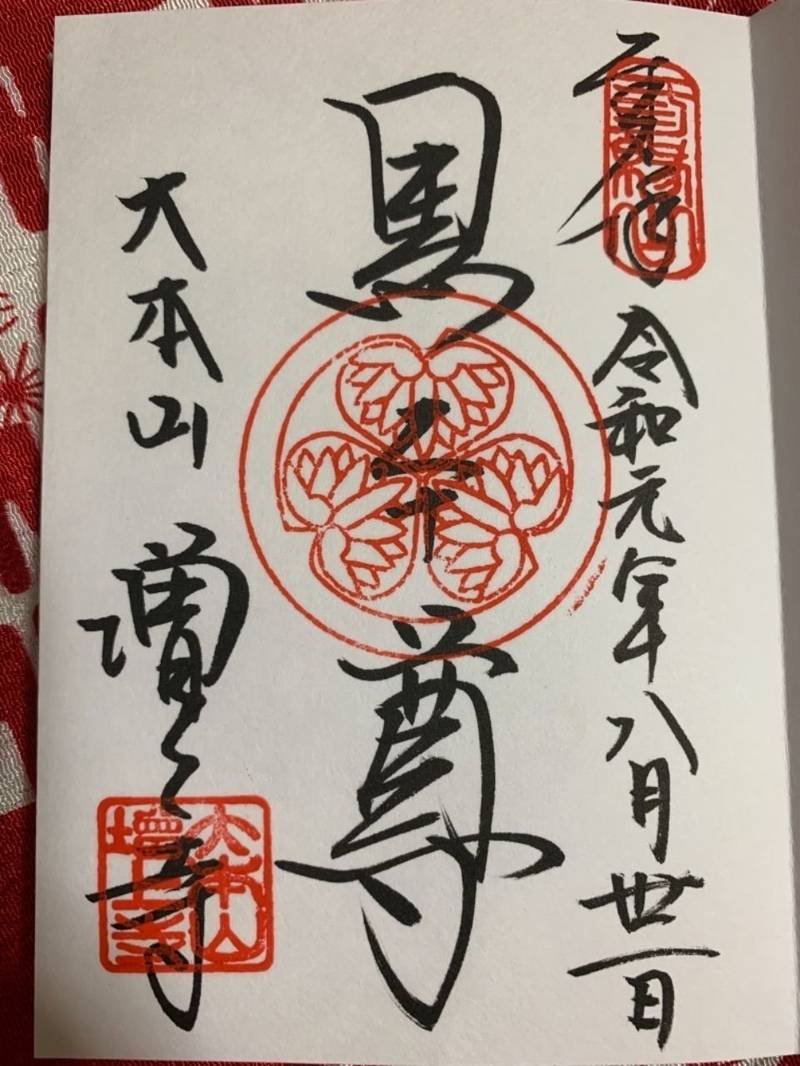 奉拝
三縁山
令和元年八月丗一日
黒本尊
大本山 増上寺
大本山
増上寺